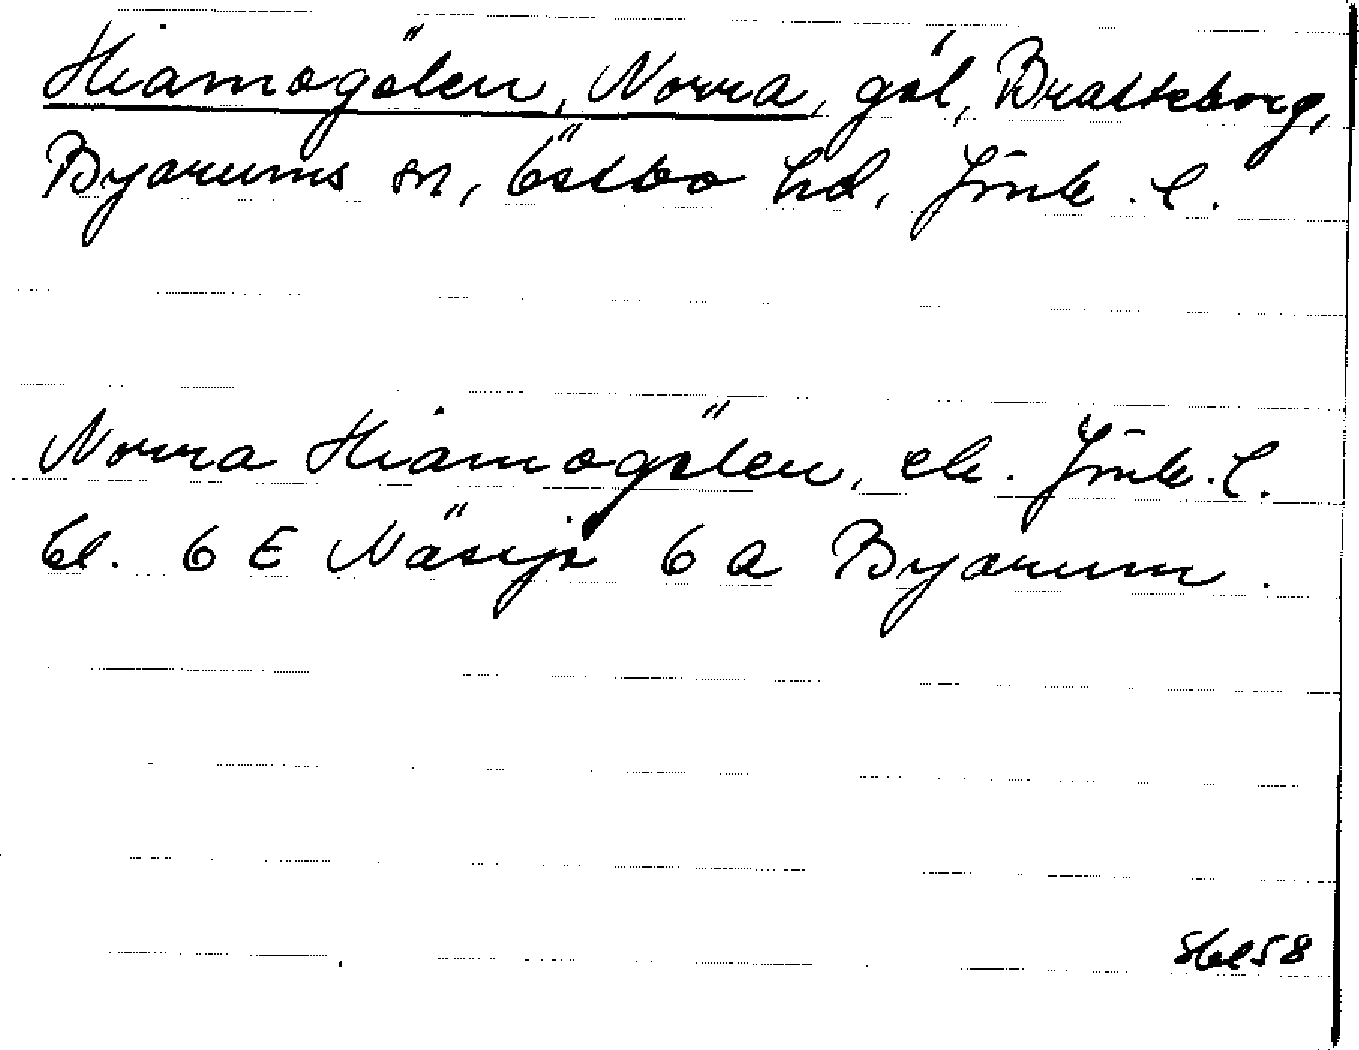 Hiamogölen, Norra, göl, Bratteborg,
Byarums sn, Östbo hd, Jönk. l.
Norra Hiamogölen, ek. Jönk. l.
bl. 6 E Näsjö 6 a Byarum.
58